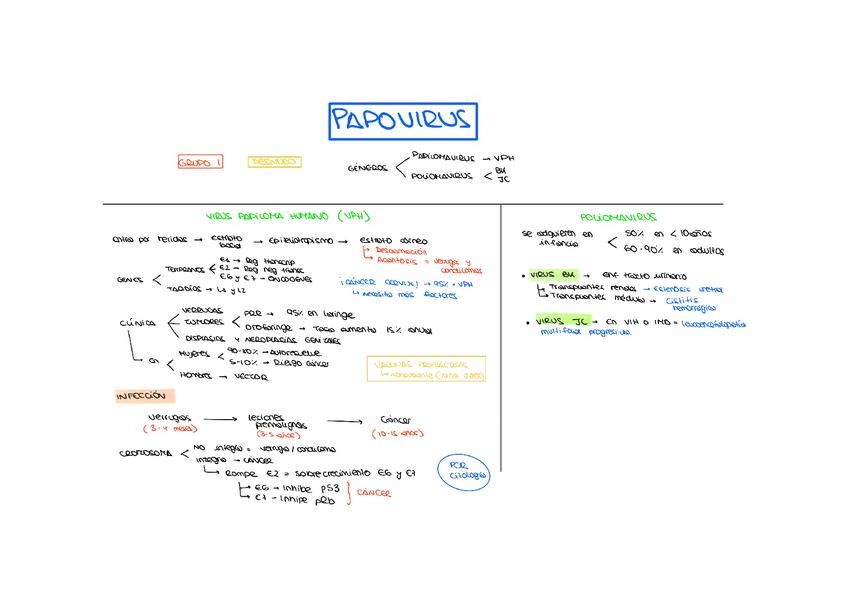 PAPOVIRUS
GRUPO I
DESNUDO
GÉNEROS
PAPILOMAVIRUS → VPH
POLIOMAVIRUS < BK
JC
VIRUS PAPILOMA HUMANO (VPH)
entra por heridas → estrato basal → epiteliotropismo → estrato córneo
Descamación
Acantosis = verruga y condilomas
GENES
TEMPRANOS
E1 → Reg transcrip
E2 → Reg neg transc
E6 y E7 → ONCOGENES
TARDÍOS → L1 y L2
¡CÁNCER CERVIX! → 95% = VPH
↳ necesita más factores
CLÍNICA
VERRUGAS
TUMORES
PRR → 95% en laringe
Orofaringe → Tasa aumento 15% anual
DISPLASIAS Y NEOPLASIAS GENITALES
en
MUJERES
90-95% → autorresuelve
5-10% → Riesgo cáncer
HOMBRES → VECTOR
VACUNAS PROFILÁCTICAS
↳ nonavalente
INFECCIÓN
verrugas → lesiones premalignas → Cáncer
(3-4 meses) (3-5 años) (10-15 años)
CROMOSOMA
NO integra = verruga/condiloma
integra → cáncer
↳ Rompe E2 = sobrecrecimiento E6 y E7
E6 → Inhibe p53
E7 - Inhibe pRb
CÁNCER
PCR
Citología
POLIOMAVIRUS
se adquieren en infancia
50% en < 10 años
60-90% en adultos
• VIRUS BK → enf tracto urinario
Transplantes renales → estenosis uretral
Transplantes médula → Cistitis hemorrágica
• VIRUS JC → En VIH o IMD = leucoencefalopatía
multifocal progresiva